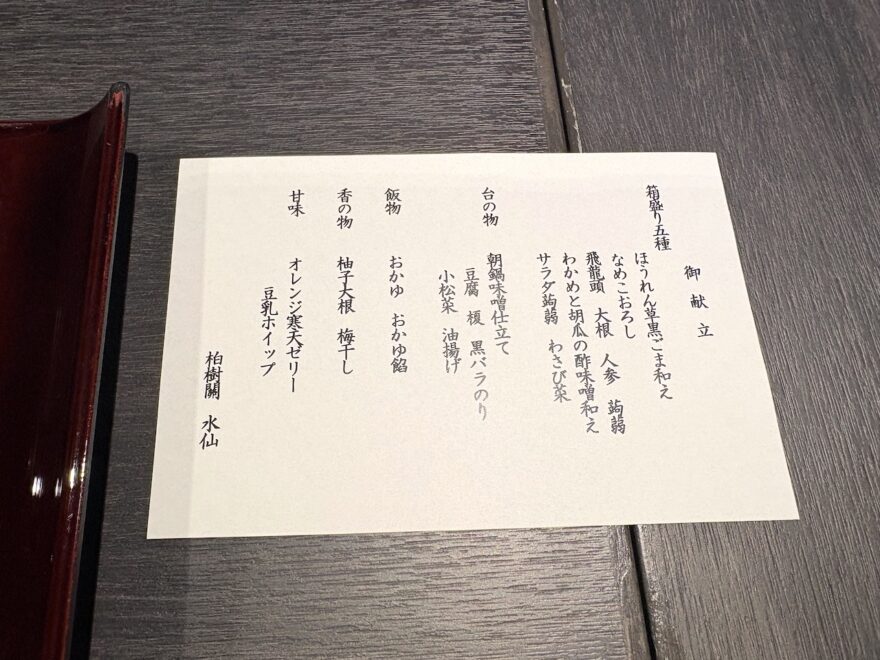 御献立
箱盛り五種
ほうれん草黒ごま和え
なめこおろし
飛龍頭 大根 人参 蒟蒻
わかめと胡瓜の酢味噌和え
サラダ蒟蒻 わさび菜
台の物
朝鍋味噌仕立て
豆腐 榎 黒バラのり
小松菜 油揚げ
飯物 おかゆ おかゆ餡
香の物 柚子大根 梅干し
甘味 オレンジ寒天ゼリー
豆乳ホイップ
柏樹關 水仙